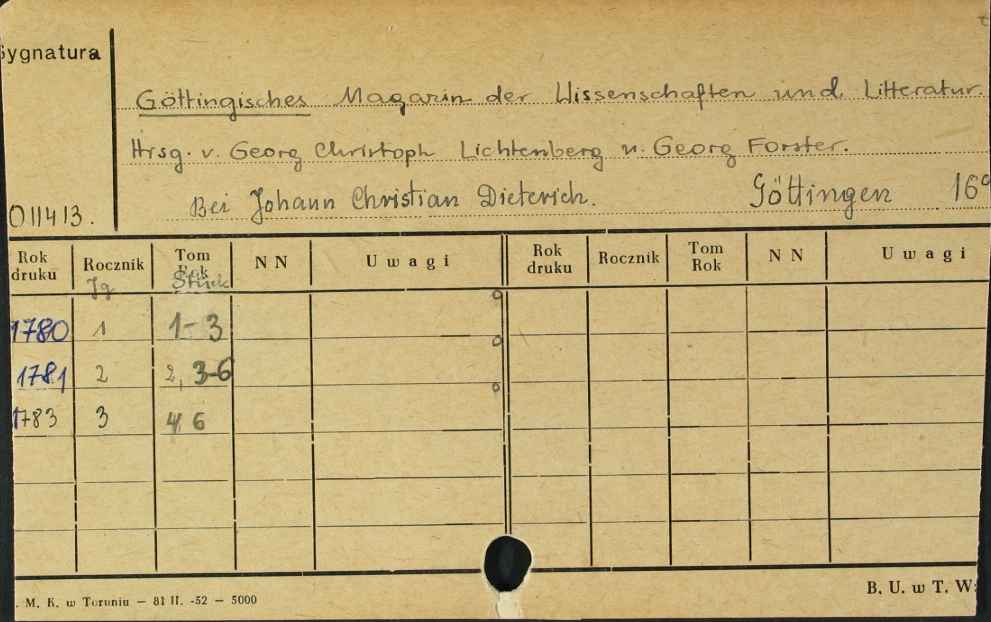 Sygnatura
Göttingisches Magazin der Wissenschaften und Litteratur.
Hrsg. v. Georg Christoph Lichtenberg u. Georg Forster.
Bei Johann Christian Dieterich. Göttingen 16°
011413.
Rok druku Rocznik Tom Rok NN Uwagi Rok druku Rocznik Tom Rok NN Uwagi
Jg Stück
1780 1 1-3
1781 2 2, 3-6
1783 3 4, 6
. M. K. w Toruniu — 81 II. -52 — 5000
B. U. w T. W: